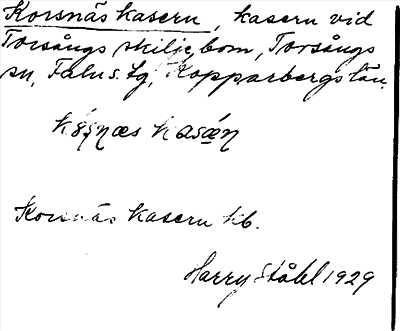 Korsnäs kasern, kasern vid
Torsångs skiljebom, Torsångs
sn, Falu s. tg, Kopparbergs län.
kasæ̀n
Korsnäs kasern kb.
Harry Ståhl 1929